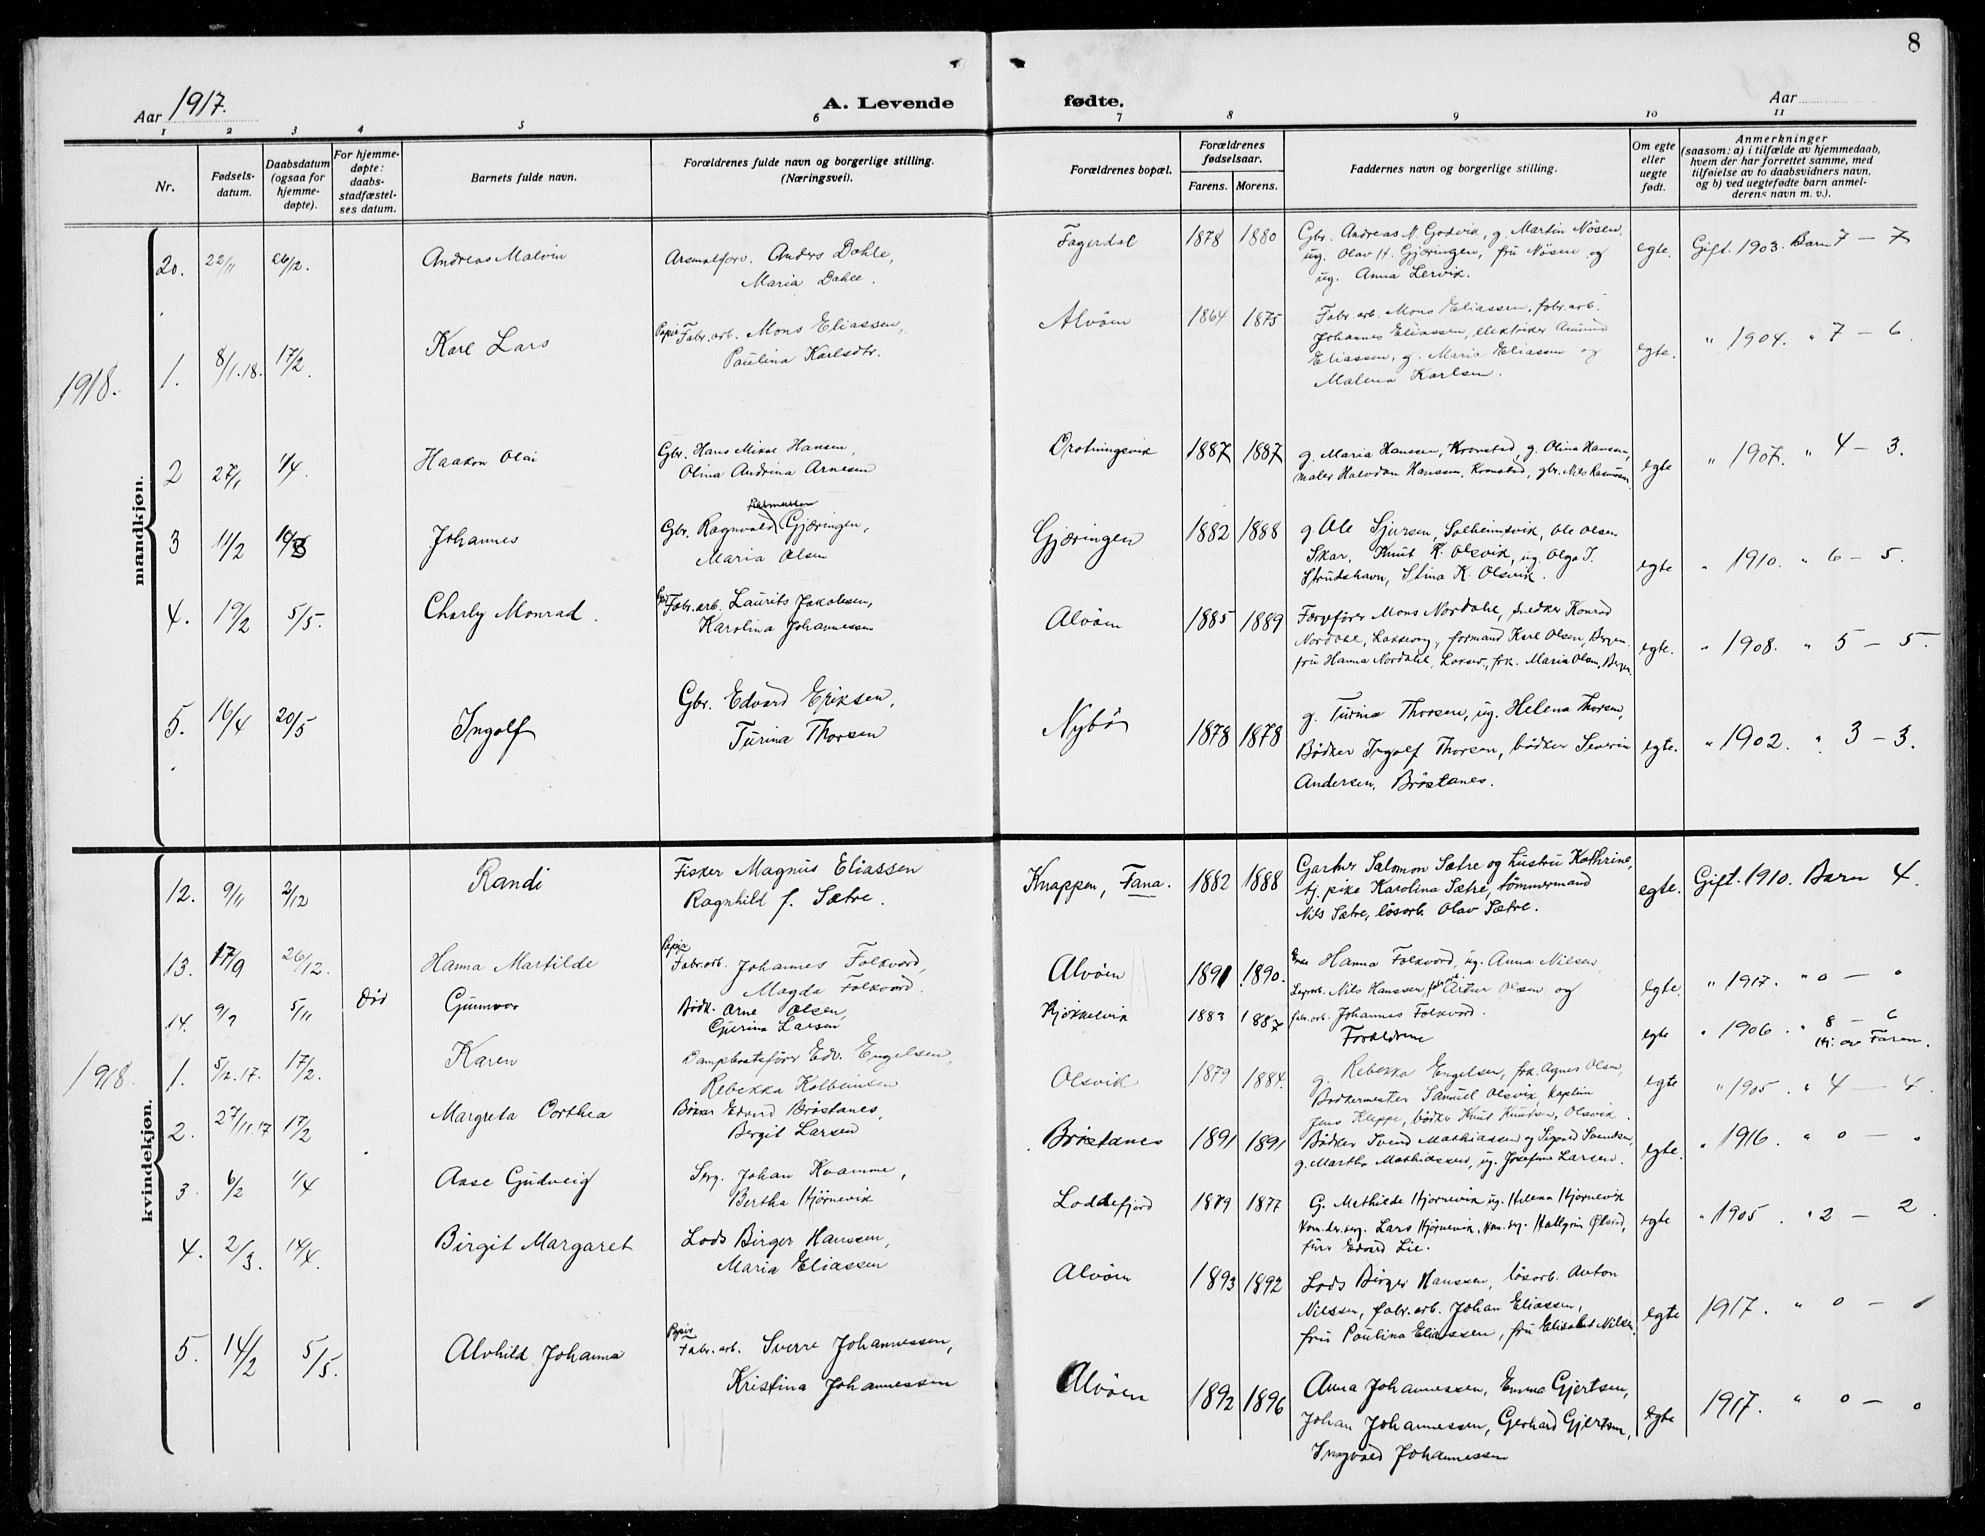 8
Aar 1917.
A. Levende fødte.
Aar
1 2 3 4 5 6 7 8 9 10 11
Nr.
Fødsels-
datum.
Daabsdatum
(ogsaa for
hjemme-
døpte).
For hjemme-
døpte:
daabs-
stadfæstel-
ses datum.
Barnets fulde navn.
Forældrenes fulde navn og borgerlige stilling.
(Næringsvei).
Forældrenes bopæl.
Forældrenes
fødselsaar.
Farens. Morens.
Faddernes navn og borgerlige stilling.
Om egte
eller
uegte
født.
Anmerkninger
(saasom: a) i tilfælde av hjemmedaab,
hvem der har forrettet samme, med
tilføielse av to daabsvidners navn,
og b) ved uegtefødte barn anmel-
derens navn m. v.).
mandkjøn.
20. 22/11 26/12. Andreas Malvin Arsenalforv. Anders Dahle, Fagerdal 1878 1880 Gbr. Andreas N. Godvik, g. Martin Nösen, egte. Gift. 1903. Barn 7 — 7
Maria Dahle. ug. Olav H. Gjæringen, fru Nösen og
ug. Anna Lervik.
1918.
1. 8/1.18. 17/2. Karl Lars Papir Fabr.arb. Mons Eliassen, Alvöen 1864 1875 Fabr. arb. Mons Eliassen, fabr.arb. egte. " 1904. " 7 — 6.
Paulina Karlsdtr. Johannes Eliassen, elektriker Amund
Eliassen, g. Maria Eliassen og
Malena Karlsen.
2 27/1 1/4. Haakon Olai Gbr. Hans Mikal Hansen, Drotningsvik 1887 1887 g. Maria Hanssen, Kronstad, g. Olina Hansen, egte " 1907. " 4 — 3.
Olina Andrina Arnesen maler Halvdan Hanssen, Kronstad, gbr. Nils Rasmussen.
3 11/2 14/3 Johannes Gbr. Ragnvald Rasmussen Gjæringen, Gjæringen 1882 1888 g. Ole Sjursen, Solheimsvik, Ole Olsen egte " 1910. " 6 — 5.
Maria Olsen Skar, Knut K. Olsvik, ug. Olga J.
Strudshavn, Stina K. Olsvik.
4. 19/2 5/5. Charly Monrad. Fabr.arb. Laurits Jakobsen, Alvöen 1885 1889 Færgefører Mons Nordahl, snedker Konrad egte. " 1908. " 5 — 5.
Karolina Johannessen Nordahl, Laksevaag, formand Karl Olsen, Bergen
fru Hanna Nordahl, Laksev., frk. Maria Olsen, Bergen
5. 16/4 20/5 Ingolf Gbr. Edvard Eriksen, Nybö 1878 1878 g. Turina Thorsen, ug. Helena Thorsen, egte. " 1902. " 3 — 3.
Turina Thorsen Bödker Ingolf Thorsen, bödker Severin
Andersen, Bröstanes.
kvindekjøn.
12. 9/11 2/12 Randi Fisker Magnus Eliassen Knappen, Fana. 1882 1888 Gartner Salomon Sætre og hustru Kathrine, egte. Gift. 1910. Barn 4.
Ragnhild f. Sætre. tj. pike Karolina Sætre, tömmermand
Nils Sætre, lösarb. Olav Sætre.
13. 17/9 26/12. Hanna Martilde Papir Fabr.arb. Johannes Folkvord, Alvöen 1891 1890. Hanna Folkvord, ug. Anna Nilsen, egte. " 1917. " 0 — "
Magda Folkvord. Nils Hanssen, Artur Olsen og
fabr.arb. Johannes Folkvord.
14. 9/9 5/11 Död Gunnvor Bödk. Arne Olsen, Kjökkelvik 1883 1887 Forældrene egte " 1906 " 8 — 6
Gjerina Larsen av Faren.
1918.
1. 5/12.17. 17/2. Karen Dampbaatsförer Edv. Engelsen, Olsvik 1879 1884. g. Rebekka Engelsen, frk. Agnes Olsen, egte " 1905 " 4 — 4.
Rebekka Kolbeinsen Bödkermester Samuel Olsvik, kaptein
Jens Kleppe, bödker Knut Knutsen, Olsvik.
2. 27/11.17 17/2 Margreta Dorthea Bödker Edvard Bröstanes, Bröstanes 1891 1891 Bödker Svend Mathiassen og Sigrid Svendsen, egte. " 1916. " 0 — "
Bergit Larsen g. Martha Mathiassen, ug. Josefine Larsen.
3. 6/2 1/4 Aase Gudveig Serg. Johan Kvamme, Loddefjord 1879 1877 G. Mathilde Hjörnevik, ug. Helena Hjörnevik egte " 1905. " 2 — 2.
Bertha Hjörnevik Lars Hjörnevik, Hallgrim Ölsvik,
Edvard Lie.
4. 2/3. 14/4. Birgit Margaret Lods Birger Hanssen, Alvöen 1893 1892 Lods Birger Hanssen, lösarb. Anton egte 1917. " 0 — "
Maria Eliassen Nilssen, fabr.arb. Johan Eliassen,
fru Paulina Eliassen, fru Elisabet Nilsen.
5. 14/2 5/5. Alvhild Johanna Papir Fabr.arb. Sverre Johannessen, Alvöen 1892 1896 Anna Johannessen, Emma Gjertsen, egte 1917. " 0 — "
Kristina Johannessen Johan Johannessen, Gerhard Gjertsen,
Ingvald Johannessen